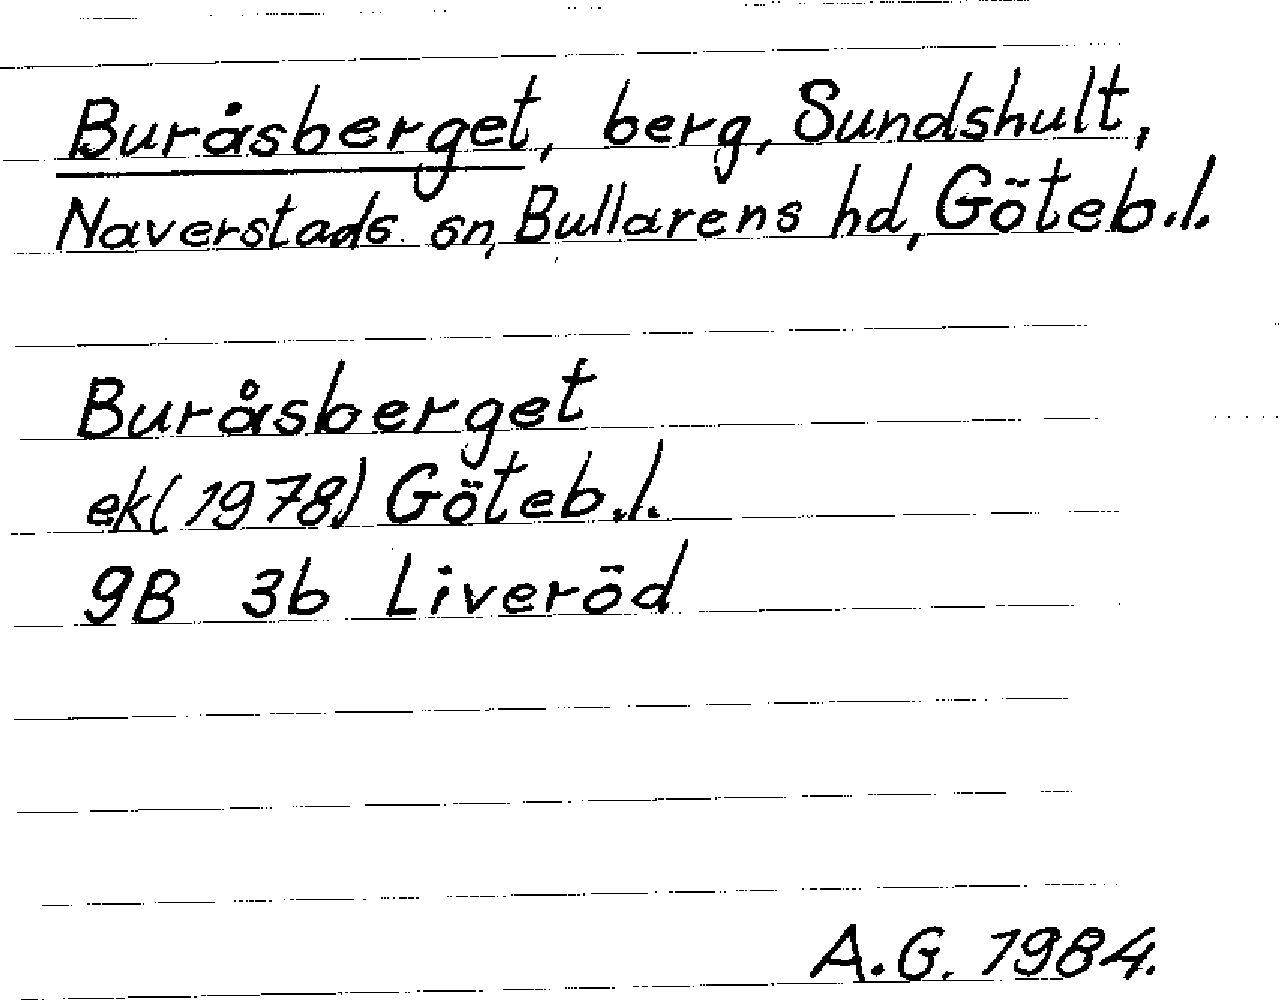 Buråsberget, berg, Sundshult,
Naverstads sn, Bullarens hd, Göteb.l.
Buråsberget
ek(1978) Göteb.l.
9B 3b Liveröd
A.G. 1984.